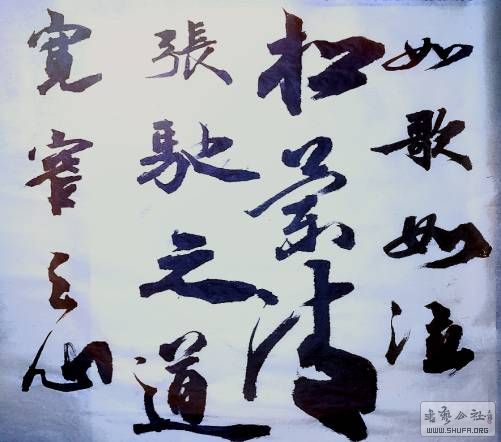 如歌如泣
松
張馳之道
寬容之心
書藝公社
WWW.SHUFA.ORG